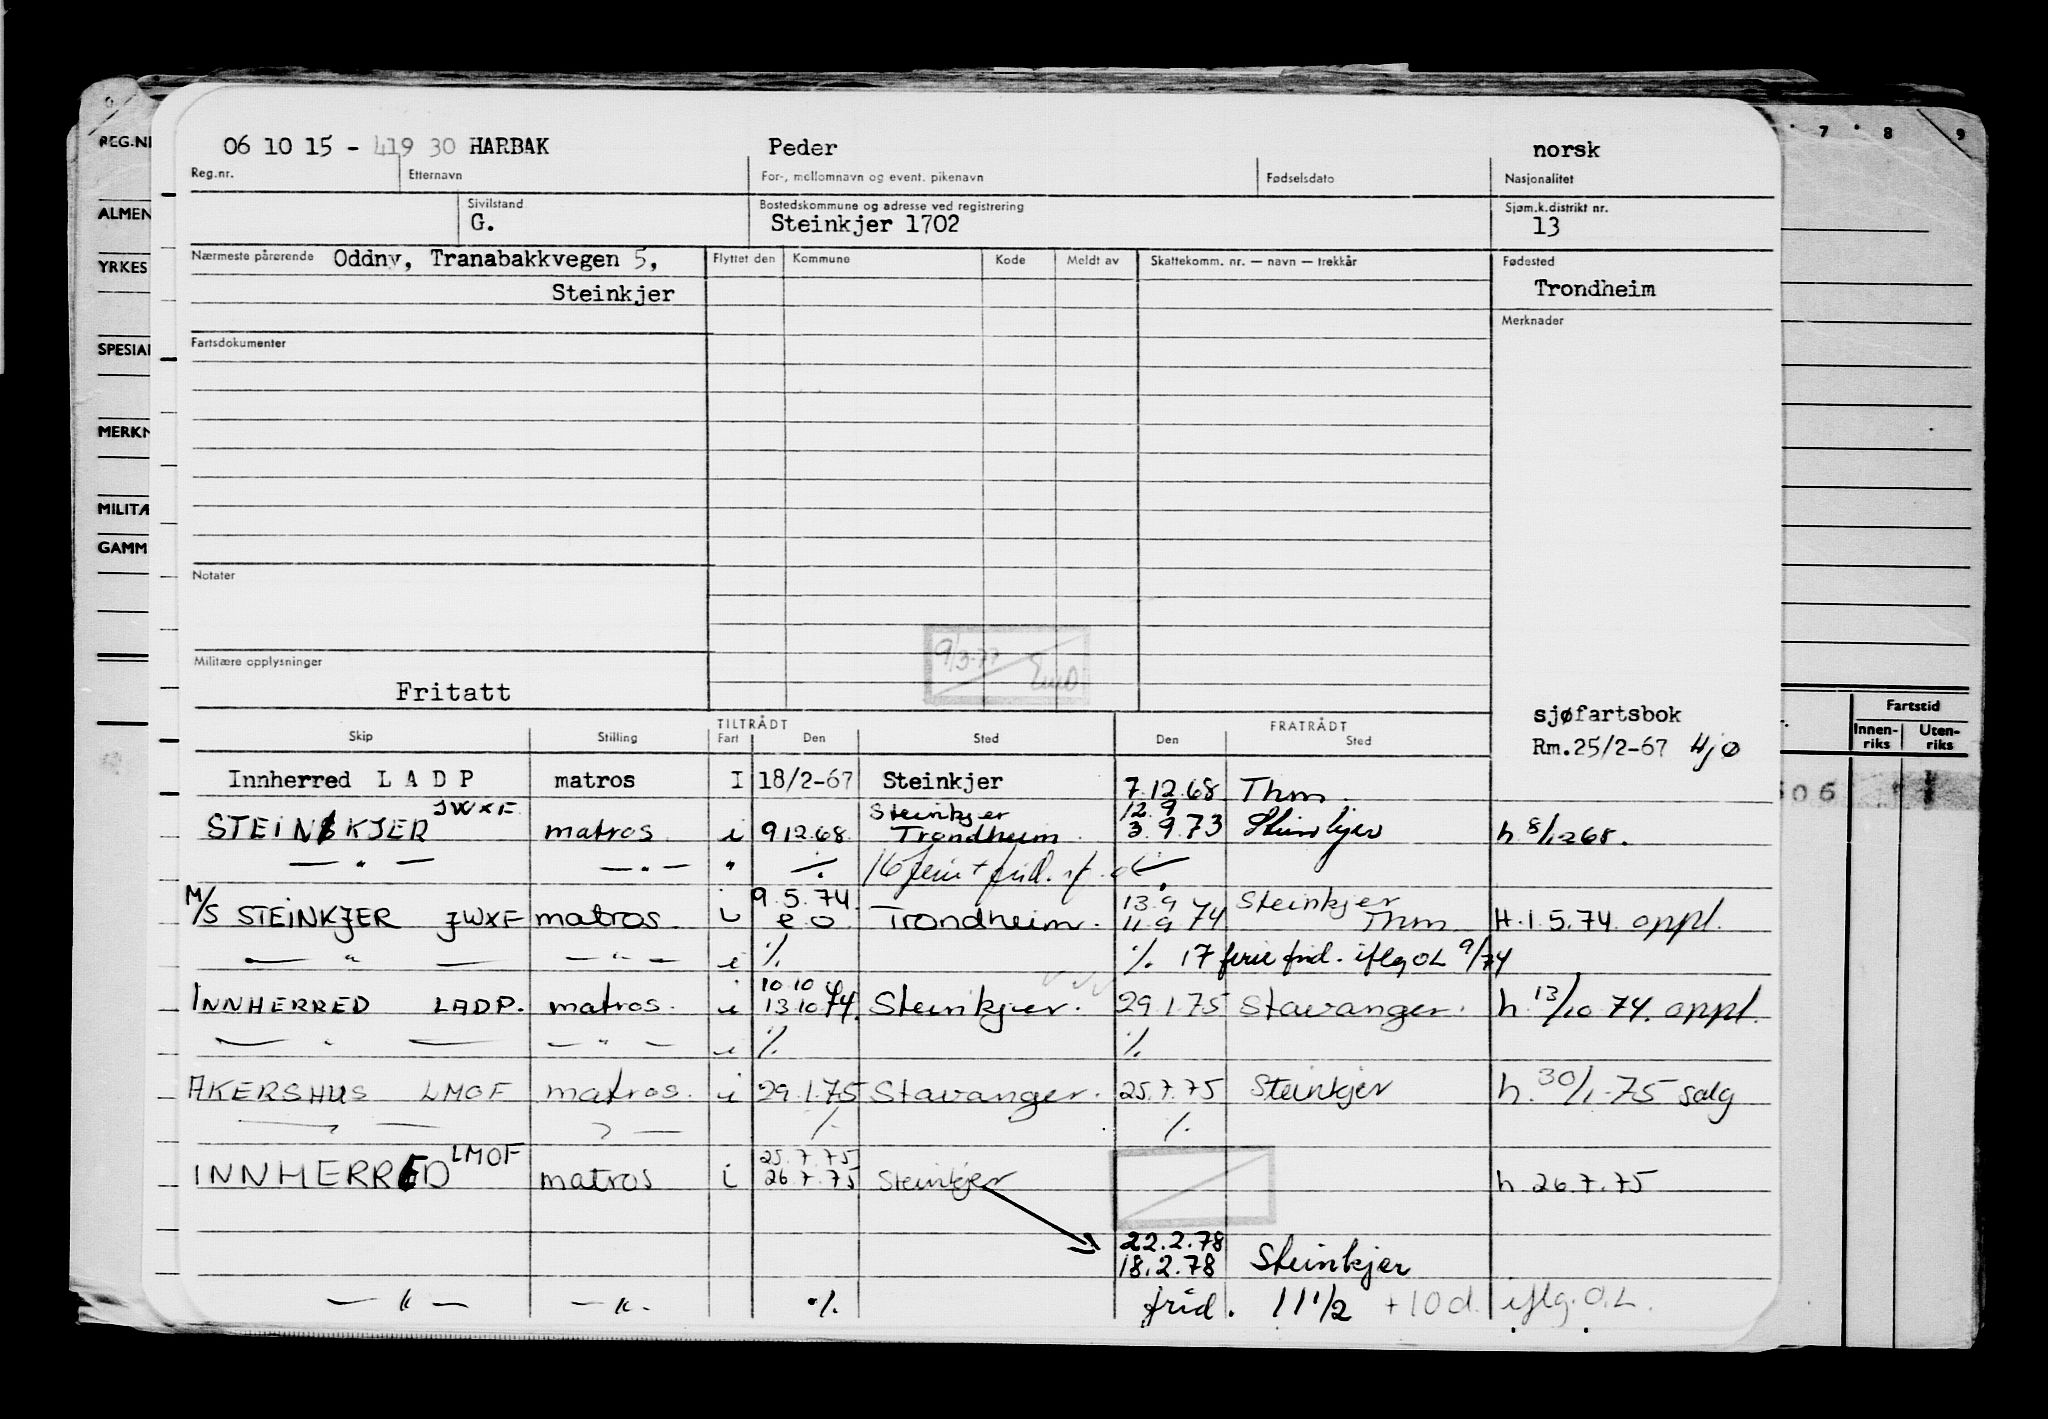 06 10 15 - 419 30 HARBAK Peder norsk
Reg.nr. Etternavn For-, mellomnavn og event. pikenavn Fødselsdato Nasjonalitet
Sivilstand Bostedskommune og adresse ved registrering Sjøm.k.distrikt nr.
G. Steinkjer 1702 13
Nærmeste pårørende Oddny, Tranabakkvegen 5, Flyttet den Kommune Kode Meldt av Skattekomm. nr. — navn — trekkår Fødested
Steinkjer Trondheim
Merknader
Fartsdokumenter
Notater
9/3-77
Militære opplysninger
Fritatt
sjøfartsbok
Rm.25/2-67 Hjø
TILTRÅDT FRATRÅDT
Skip Stilling Fart Den Sted Den Sted
Innherred L A D P matros I 18/2-67 Steinkjer 7.12.68 Thm.
JWXF Steinkjer 12.9
STEINKJER matros i 9.12.68 Trondheim 3.9.73 Steinkjer h 8/12 68.
— " — — " — " ./. 16 ferie + frid.
9.5.74 13.9 Steinkjer
M/S STEINKJER JWXF matros i e.o. Trondheim. 11.9 74 Thm H.1.5.74 oppl.
— " — — " — i ./. ./. 17 ferie frid. iflg OL 9/74
10.10
INNHERRED LADP. matros. i 13.10.74. Steinkjer. 29.1.75 Stavanger. h. 13/10 74. oppl.
— " — — " — i ./. ./.
AKERSHUS LMOF matros. i 29.1.75 Stavanger. 25.7.75 Steinkjer h. 30/1-75 salg
— " — — " — ./. ./.
LMOF 25.7.75
INNHERRED matros i 26.7.75 Steinkjer h 26.7.75
22.2.78
18.2.78 Steinkjer
— " — — " — ./. frid. 11 1/2 + 10 d. iflg. O.L.
REG.NR
ALMEN
YRKES
SPESIAL
MERKN
MILITÆ
GAMM
7 8 9
Fartstid
Innen-riks Uten-riks
606